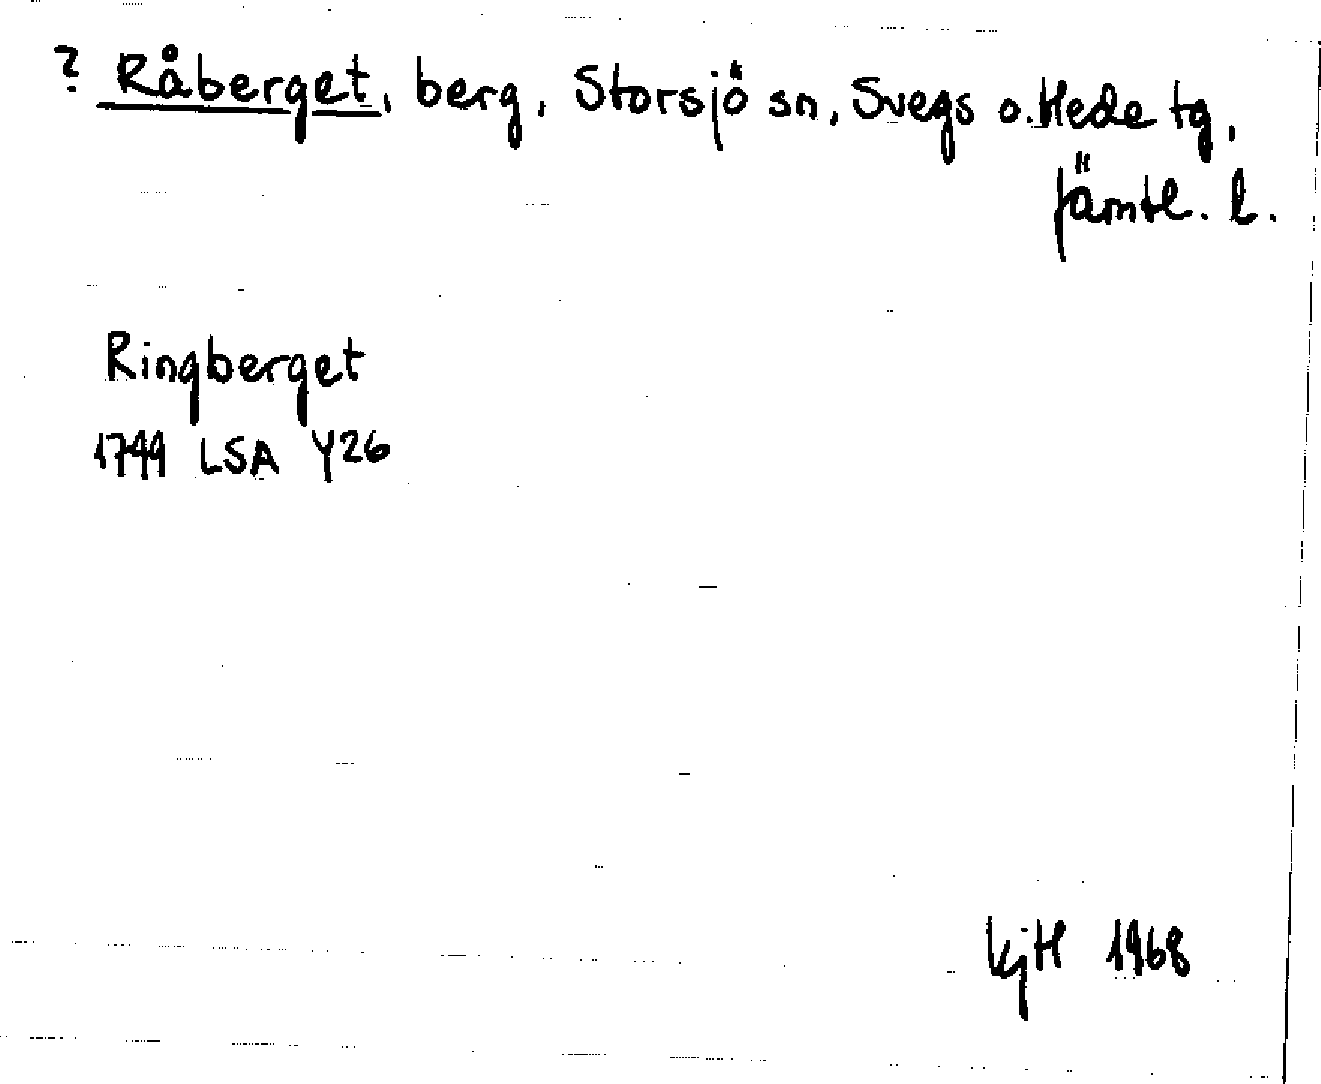 ? Råberget, berg, Storsjö sn, Svegs o. Hede tg,
Jämtl. l.
Ringberget
1799 LSA Y26
KjH 1968